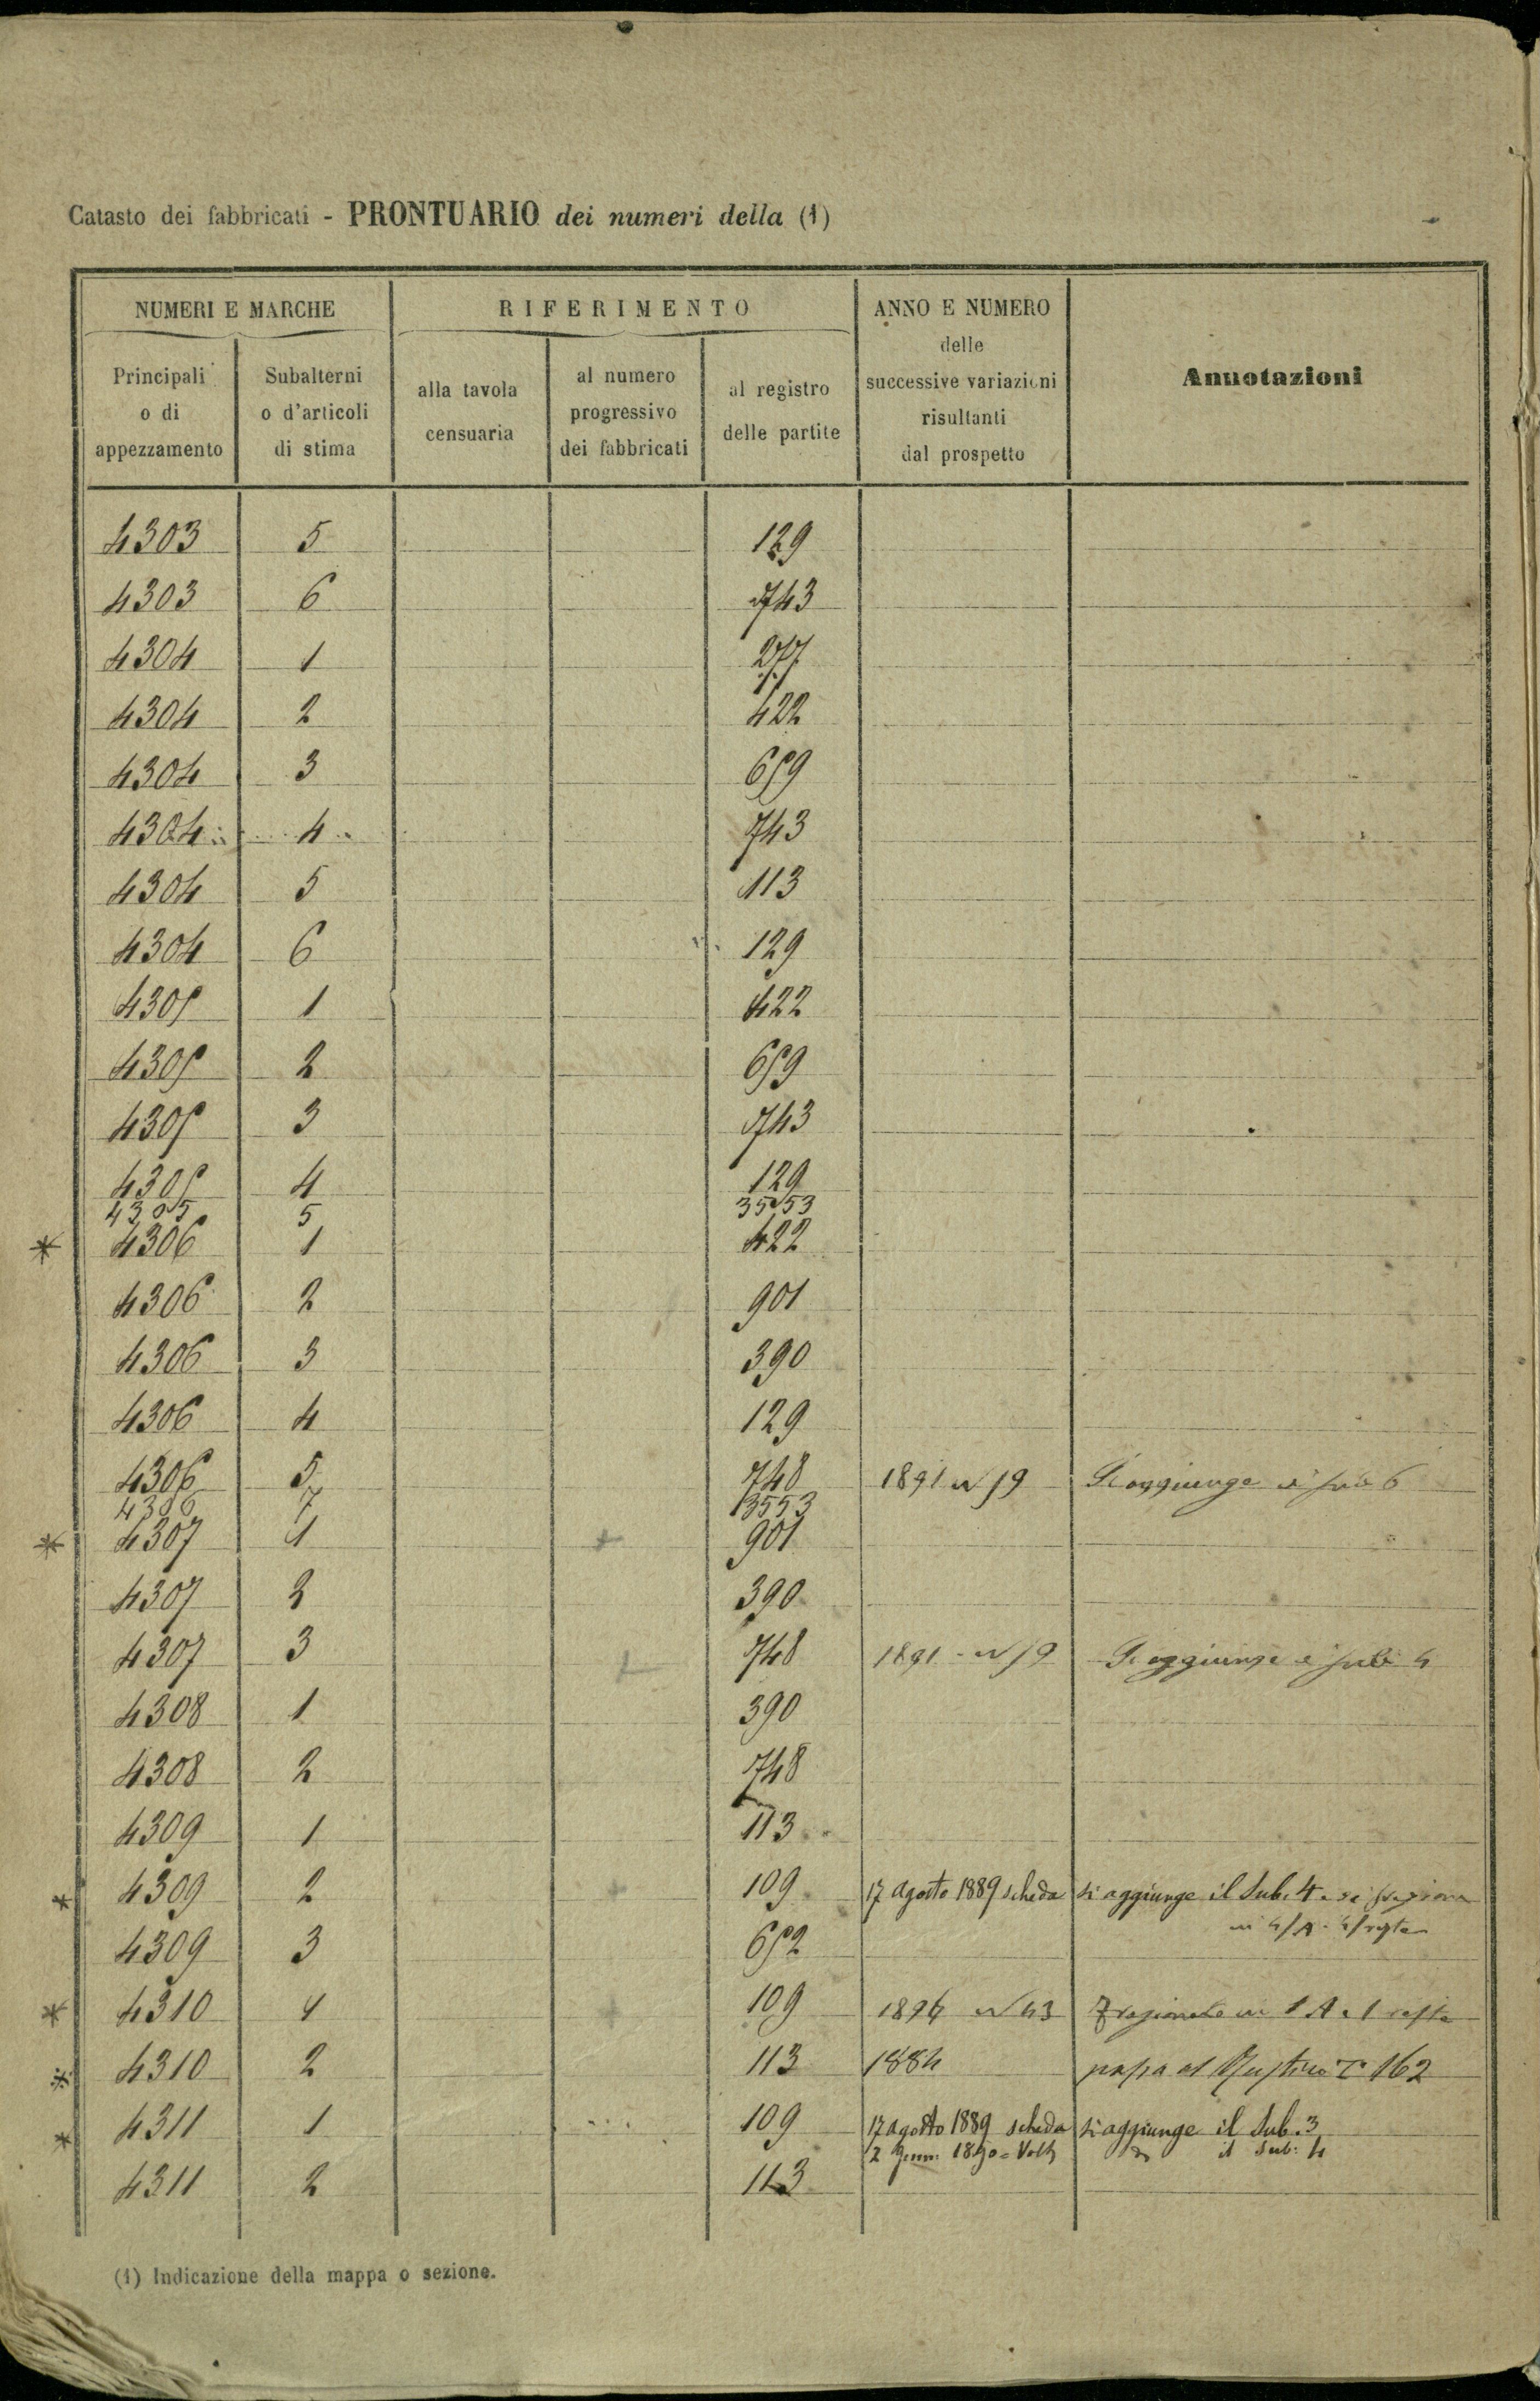 Catasto dei fabbricati - PRONTUARIO dei numeri della (1)
NUMERI E MARCHE
RIFERIMENTO
ANNO E NUMERO
delle
successive variazioni
risultanti
dal prospetto
Annotazioni
Principali
o di
appezzamento
Subalterni
o d'articoli
di stima
alla tavola
censuaria
al numero
progressivo
dei fabbricati
al registro
delle partite
4303 5 129
4303 6 743
4304 1 277
4304 2 422
4304 3 659
4304 4 743
4304 5 113
4304 6 129
4305 1 422
4305 2 659
4305 3 743
4305 4 129
4305 5 3553
* 4306 1 422
4306 2 901
4306 3 390
4306 4 129
4306 5 748 1891 N 19 Si aggiunge il sub 6
4306 7 3553
* 4307 1 + 901
4307 2 390
4307 3 748 1891 - N 19 Si aggiunge il sub 4
4308 1 390
4308 2 748
4309 1 113
* 4309 2 + 109 17 agosto 1889 scheda si aggiunge il Sub. 4. si
in 4/A
4309 3 652
* 4310 1 + 109 189 N 43 Frazionato in 1 A e 1 resta
* 4310 2 113 1884 passa al 162
* 4311 1 109 17 agosto 1889 scheda si aggiunge il Sub. 3
2 Genn: 1890 = Volt il Sub: 4
4311 2 113
(1) Indicazione della mappa o sezione.